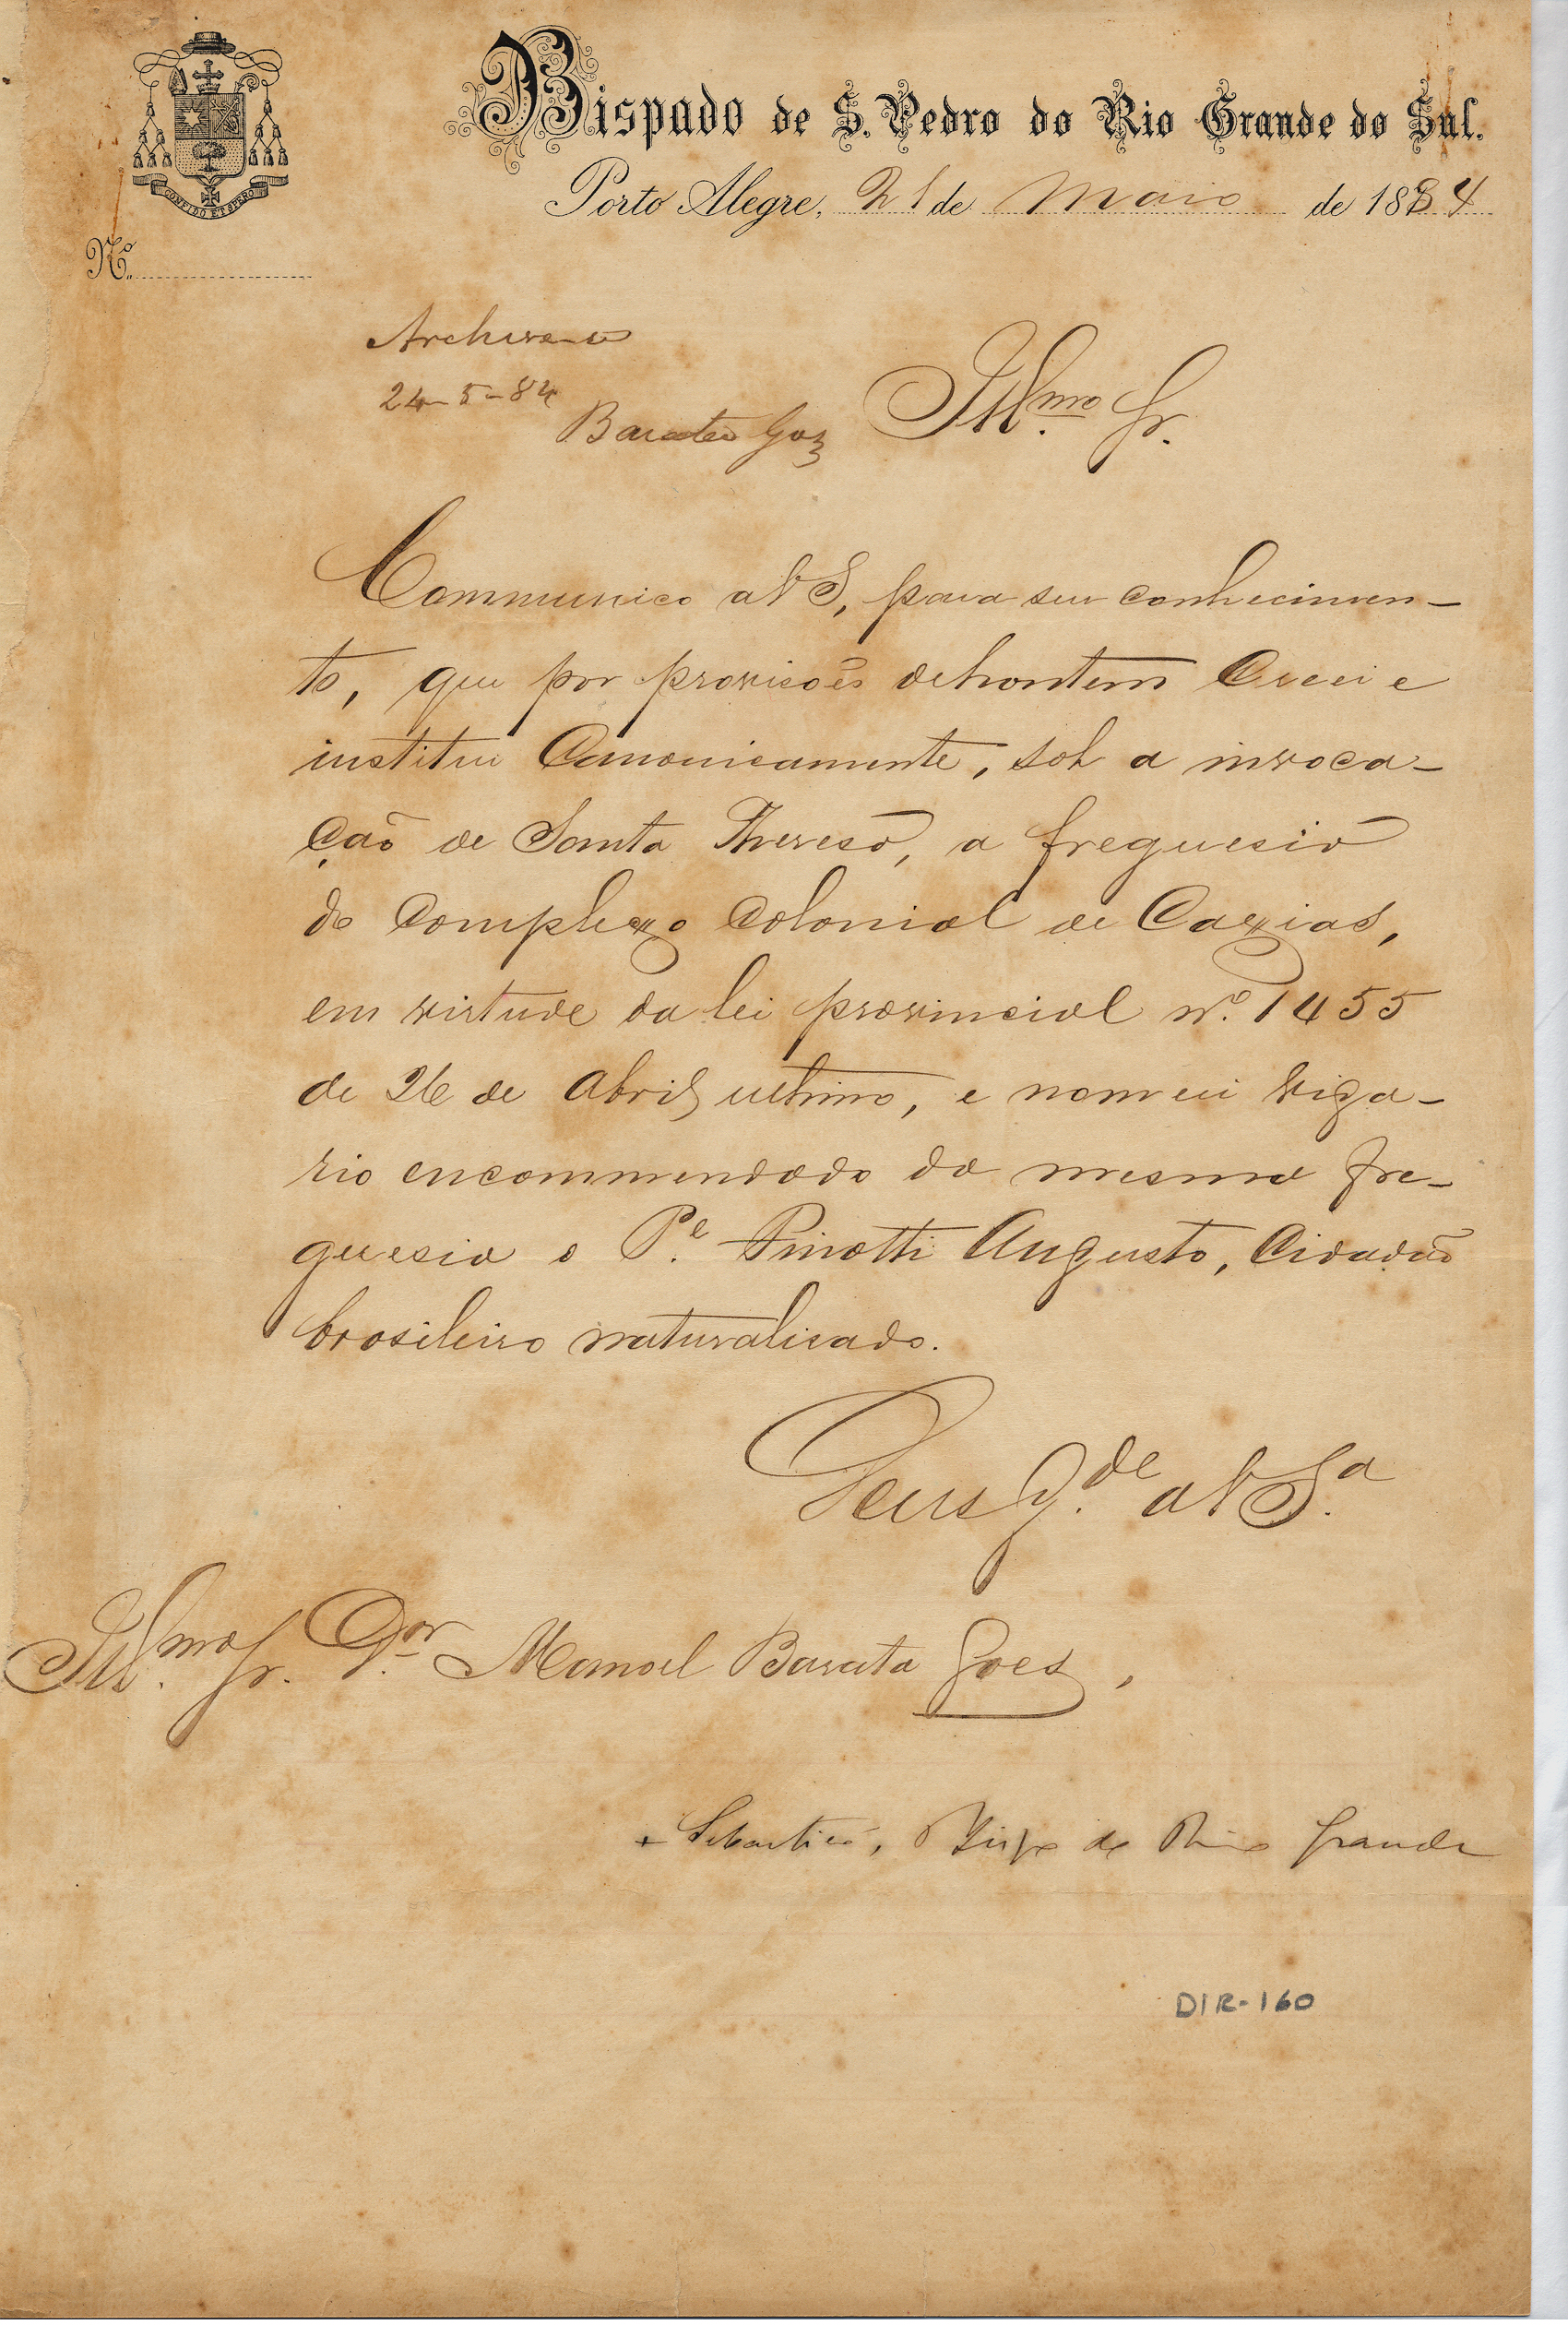 CONFIDO ET SPERO
Bispado de S. Pedro do Rio Grande do Sul.
Porto Alegre, 21 de Maio de 1884
Nº
Archive-se
24-5-84
Barata Goes
Illmo. Sr.
Communico a V S, para seu conhecimen-
to, que por provisões de hontem Creei e
institui Canonicamente, sob a invoca-
ção de Santa Thereza, a freguesia
do Complexo Colonial de Caxias,
em virtude da lei provincial nº. 1455
de 26 de Abril ultimo, e nomeei viga-
rio encommendado da mesma fre-
guesia o Pe. Pinotti Augusto, Cidadão
brasileiro naturalisado.
Deus G.de a V Sa.
Illmo. Sr. Dor. Manoel Barata Goes,
+ Sebastião, Bispo do Rio Grande
DIR-160